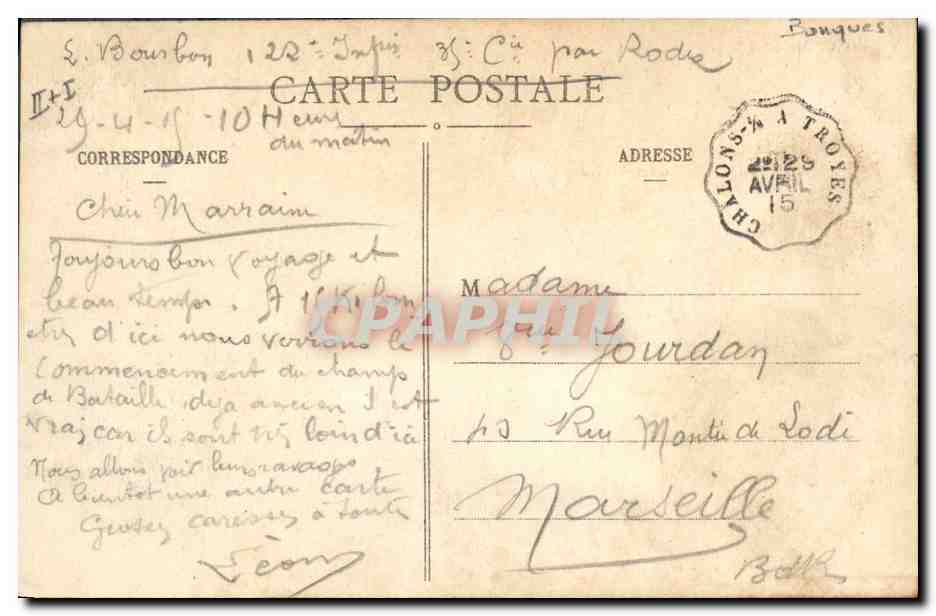 Bouques
L. Bourbon 122e Infie 35e Cie par Rodez
CARTE POSTALE
II + I
29-4-15-10 Heures
du matin
CORRESPONDANCE
ADRESSE
CHALONS-S/M A TROYES
2E 29
AVRIL
15
Cher Marraine
Toujours bon voyage et
beau temps. A 15 Kilom
etres d'ici nous verrons le
Commencement du champ
de Bataille, deja ancien I est
vrai car ils sont très loin d'ici
Nous allons voir leurs ravages.
A bientot une autre carte
Grosses caresses à toute
Léon
Madame
Vve Jourdan
43 Rue Montée de Lodi
Marseille
BdR
CPAPHIL